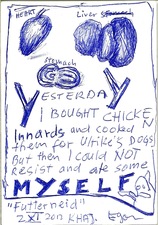 HEART
Liver
Stomach
YESTERDAY
I BOUGHT CHICKEN
Innards and cooked
them for Ulrike's DOGS
But then I could NOT
Resist and ate some
MYSELF
"Futterneid"
2 XI 2012 KHAJ. Egon